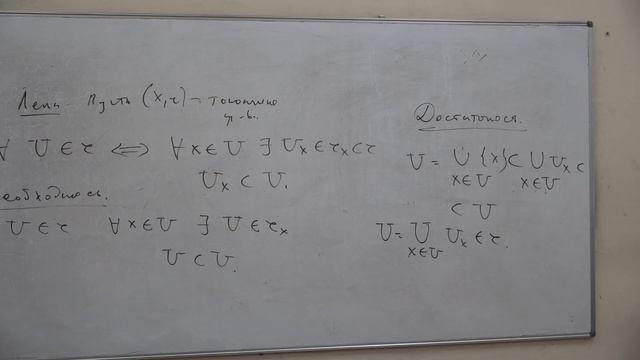 Лема Пусть (X,τ) – топологич
пр-во.
∀ U ∈ τ ⇔ ∀ x ∈ U ∃ U_x ∈ τ_x ⊂ τ
U_x ⊂ U.
еобходимость.
U ∈ τ ∀ x ∈ U ∃ U ∈ τ_x
U ⊂ U.
Достаточность.
U = ∪ {x} ⊂ ∪ U_x ⊂
x∈U x∈U
⊂ U
U = ∪ U_x ∈ τ.
x∈U